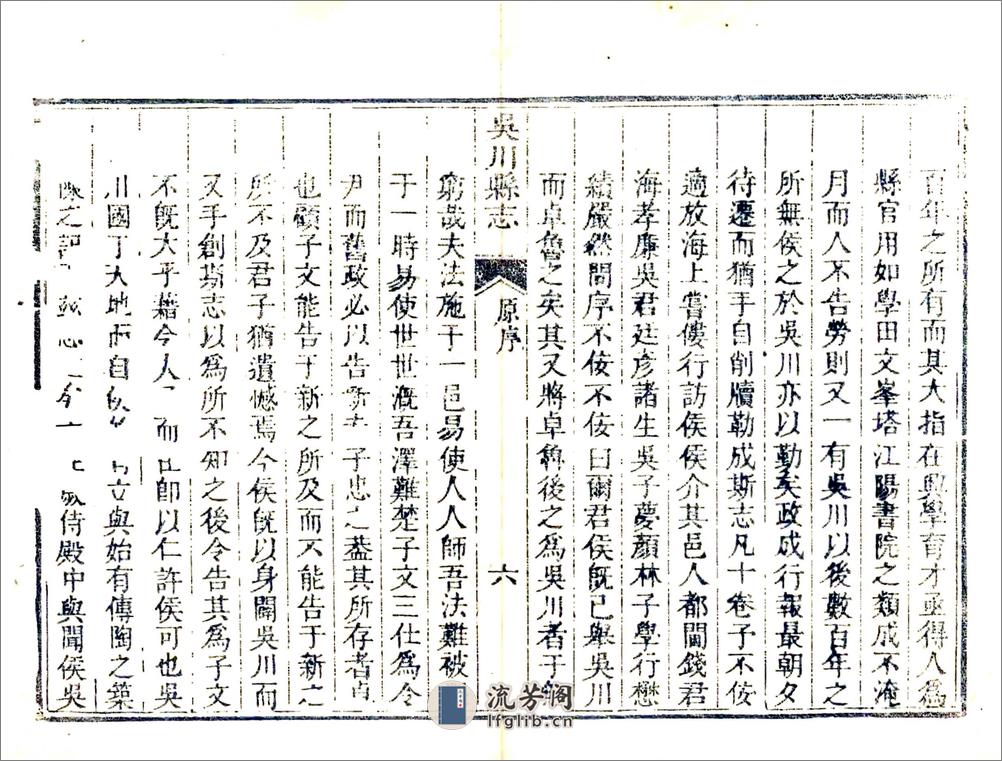 百年之所有而其大指在興學育才亟得人爲
縣官用如學田文峯塔江陽書院之類成不淹
月而人不告勞則又一有吳川以後數百年之
所無侯之於吳川亦以勤矣政成行報最朝夕
待遷而猶手自削牘勒成斯志凡十卷予不佞
適放海上嘗僂行訪侯侯介其邑人都閫錢君
海孝廉吳君廷彥諸生吳子夢顏林子學行懋
績嚴然問序不佞不佞曰爾君侯旣已舉吳川
而卓魯之矣其又將卓魯後之爲吳川者于
吳川縣志
原序
六
窮哉夫法施于一邑易使人人師吾法難被
于一時易使世世漑吾澤難楚子文三仕爲令
尹而舊政必以告新 子忠之葢其所存者
也顧子文能告于新之所及而不能告于新之
所不及君子猶遺憾焉今侯旣以身闢吳川而
又手創斯志以爲所不知之後令告其爲子文
不旣大乎藉今人 而 卽以仁許侯可也吳
川國于天地而自 立與始有傳陶之葉
陳之記 志 今 侍殿中與聞侯吳
流芳阁
lfglib.cn